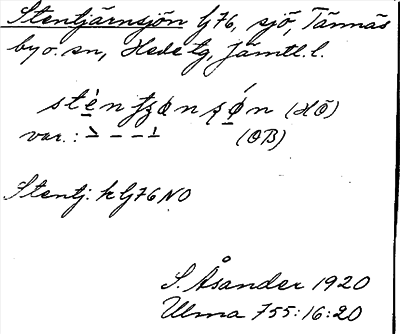 Stentjärnsjön lj76, sjö, Tännäs
by o. sn, Hede tg, Jämtl. l.
(HÖ)
var.: (OB)
Stentj: k lj76NO
S. Åsander 1920
Ulma 755:16:20